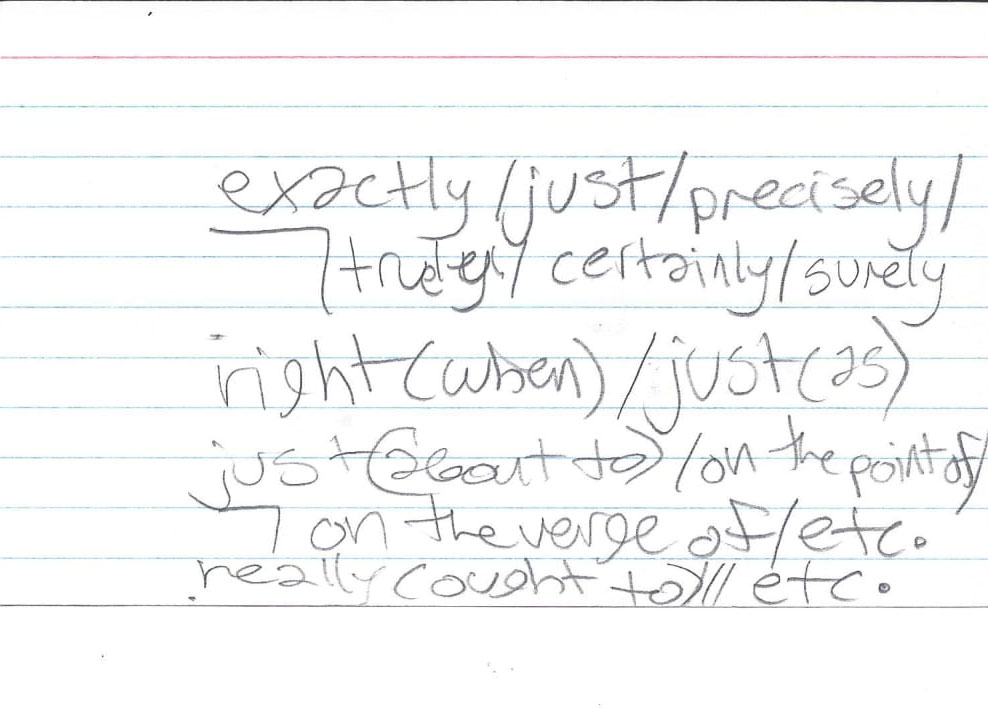 exactly/just/precisely/
truly/certainly/surely
right(when)/just(as)
just(about to)/on the point of/
on the verge of/etc.
really(ought to)// etc.